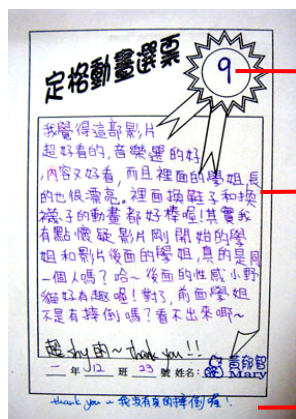 定格動畫選票
9
我覺得這部影片
超好看的,音樂選的好
,內容又好看,而且裡面的學姐,長
的也很漂亮。裡面換鞋子和換
襪子的動畫都好棒喔!其實我
有點懷疑影片剛開始的學
姐和影片後面的學姐,真的是同
一個人嗎?哈~後面的性感小野
貓好有趣喔!對了,前面學姐
不是有摔倒嗎?看不出來哪~
超shy的~ thank you!!
二年12班23號 姓名:
Mary
thank you~ 我沒有真的摔倒喔!